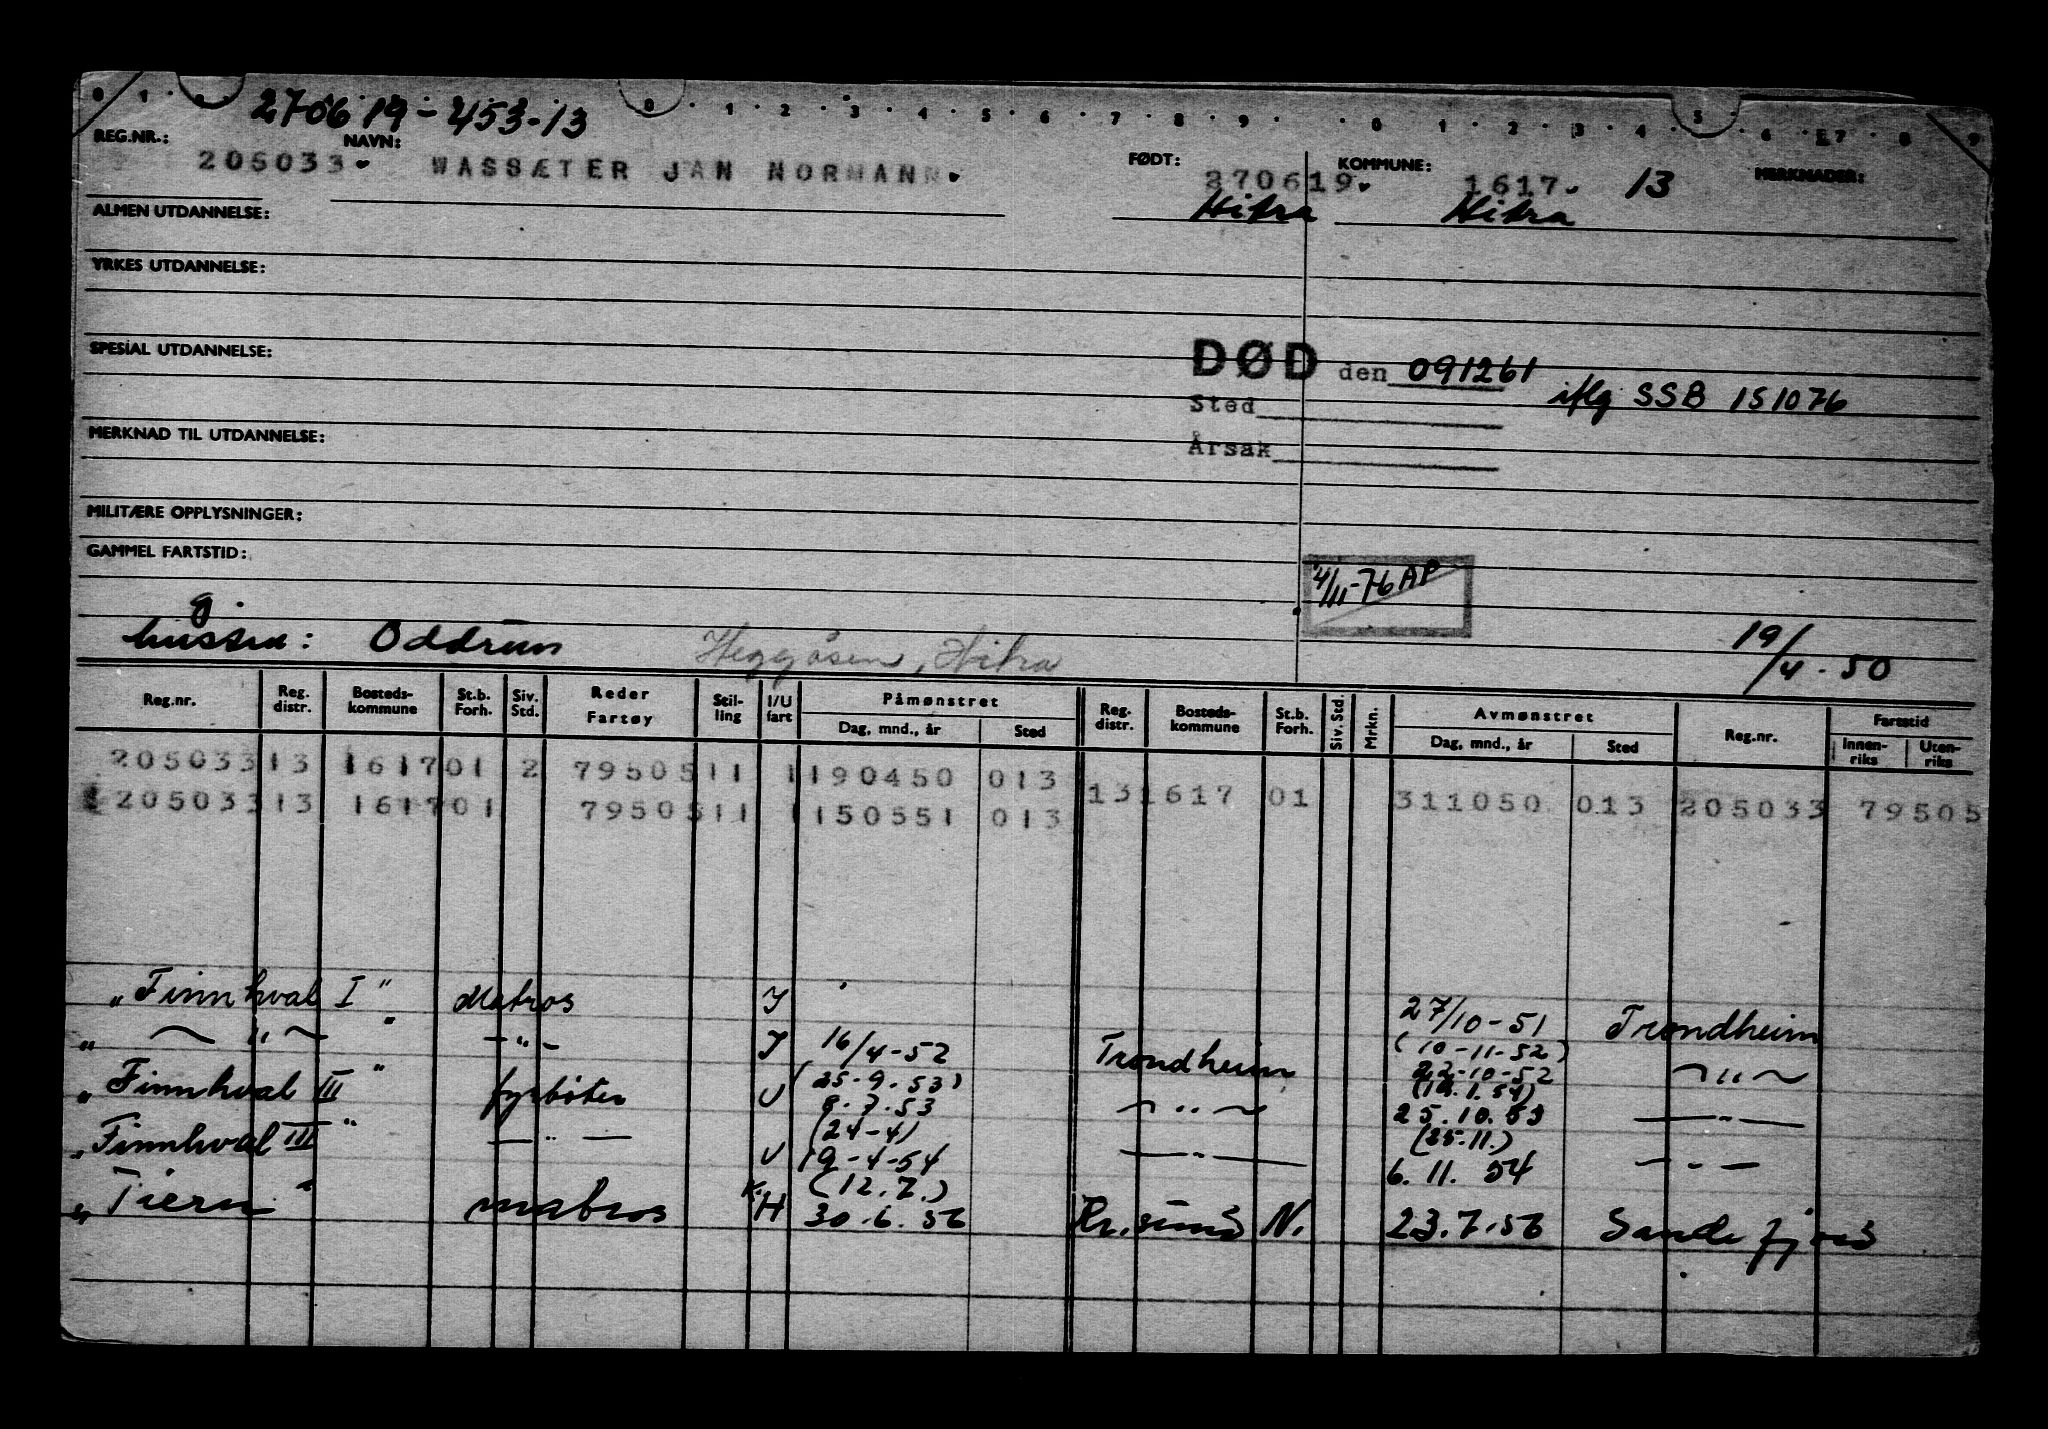 0 1 0 1 2 3 4 5 6 7 8 9 0 1 2 3 4 5 6 7 8 9
270619-453.13
REG.NR.: NAVN: FØDT: KOMMUNE: MERKNADER:
205033 WASSÆTER JAN NORMANN 270619 1617 13
Hitra Hitra
ALMEN UTDANNELSE:
YRKES UTDANNELSE:
SPESIAL UTDANNELSE:
DØD den 091261 iflg SSB 151076
Sted
Årsak
MERKNAD TIL UTDANNELSE:
MILITÆRE OPPLYSNINGER:
GAMMEL FARTSTID:
4/11-76 AP
g.
hustru: Oddrun Heggåsen, Hitra 19/4-50
Reg.nr. Reg. distr. Bosteds-kommune St.b. Forh. Siv. Std. Reder Fartøy Stil-ling I/U fart Påmønstret Dag, mnd., år Sted Reg. distr. Bosteds-kommune St.b. Forh. Siv. Std. Mrkn. Avmønstret Dag, mnd., år Sted Reg.nr. Fartstid Innen-riks Uten-riks
205033 13 1617 01 2 79505 11 1 190450 013 13 1617 01 311050 013 205033 79505
205033 13 1617 01 79505 11 1 150551 013
"Finnhval I" Matros I 27/10-51 Trondheim
" — " — " - " - I 16/4-52 Trondheim (10-11-52) 22-10-52 — " —
"Finnhval III" fyrbøter U (25.9.53) 8.7.53 — " — (14.1.54) 25.10.53 — " —
"Finnhval III" — " — U (24-4) 19-4-54 — " — (25.11.) 6.11.54 — " —
"Tiern" matros K.H (12.7.) 30.6.56 Kr.sund N. 23.7.56 Sandefjord